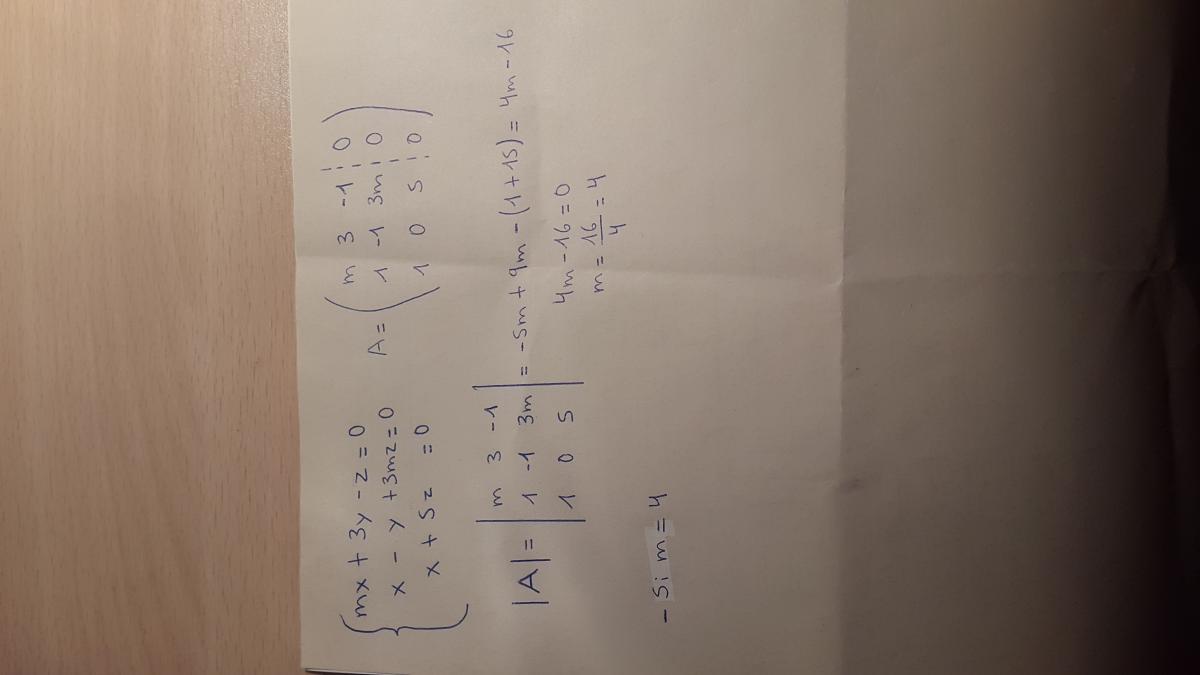 mx + 3y - z = 0
x - y + 3mz = 0
x + 5z = 0
A = ( m 3 -1 ¦ 0
1 -1 3m ¦ 0
1 0 5 ¦ 0 )
|A| = | m 3 -1
1 -1 3m
1 0 5 | = -5m + 9m - (1 + 15) = 4m - 16
4m - 16 = 0
m = 16/4 = 4
- Si m = 4